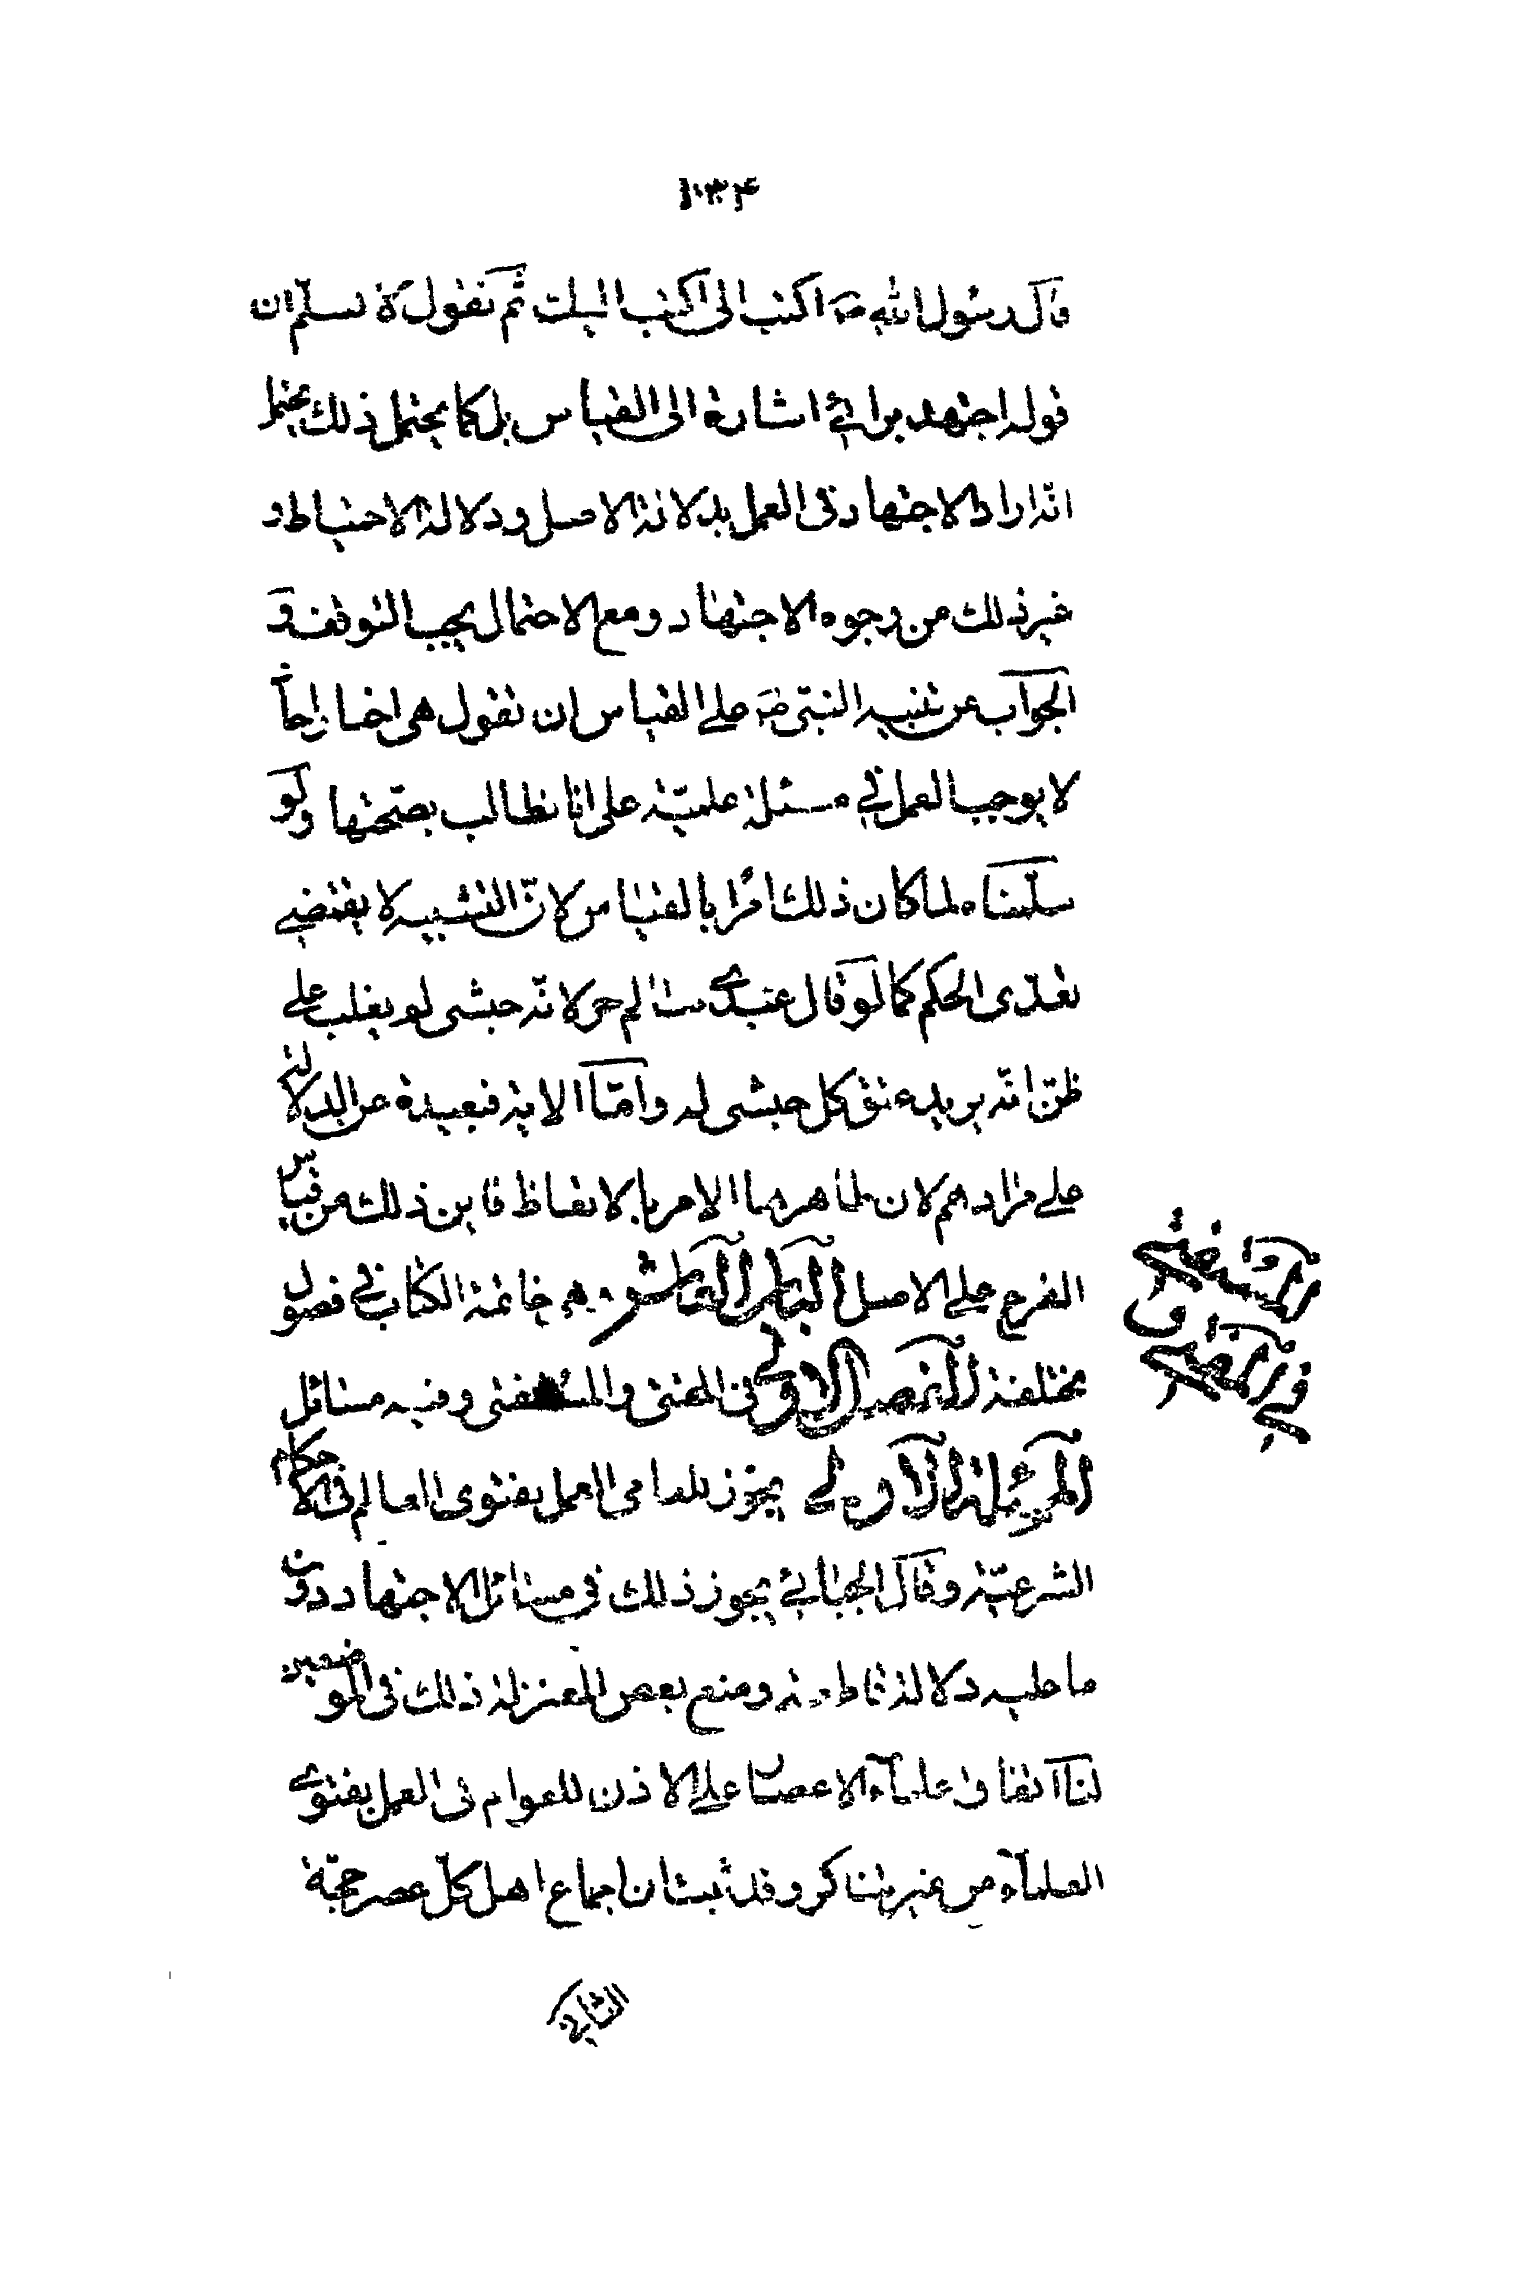 ۱۰۳۴
قال رسول الله ص اكتب الى اكتب اليك ثم نقول لا نسلم ان
قوله اجتهد برائي اشارة الى القياس بل كما يحتمل ذلك يحتمل
انه اراد الاجتهاد في العمل بدلالة الاصل ودلالة الاحتياط و
غير ذلك من وجوه الاجتهاد ومع الاحتمال يجب التوقف و
الجواب عن تنبيه النبي ص على القياس ان نقول هي اخبار احاد
لا يوجب العمل في مسئلة علمية على انا نطالب بصحتها ولو
سلمناه لما كان ذلك امرا بالقياس لان التشبيه لا يقتضي
تعدى الحكم كما لو قال عبدي سالم حر لانه حبشى لم يغلب على
ظن انه يريد عتق كل حبشى له واما الاية فبعيدة عن الدلالة
على مرادهم لان ظاهرها الامر بالاتعاظ فاين ذلك من قياس
الفرع على الاصل الباب العاشر وهو خاتمة الكتاب في فصول
مختلفة الفصل الاول في المفتى والمستفتى وفيه مسائل
المسئلة الاولى يجوز للعامى العمل بفتوى العالم فى الاحكام
الشرعية وقال الجبائي يجوز ذلك في مسائل الاجتهاد دون
ما عليه دلالة قاطعة ومنع بعض المعتزلة ذلك فى الموضعين
لنا اتفاق علماء الاعصار على الاذن للعوام في العمل بفتوى
العلماء من غير تناكر وقد ثبت ان اجماع اهل كل عصر حجة
في المفتي و
المستفتي
الثاني